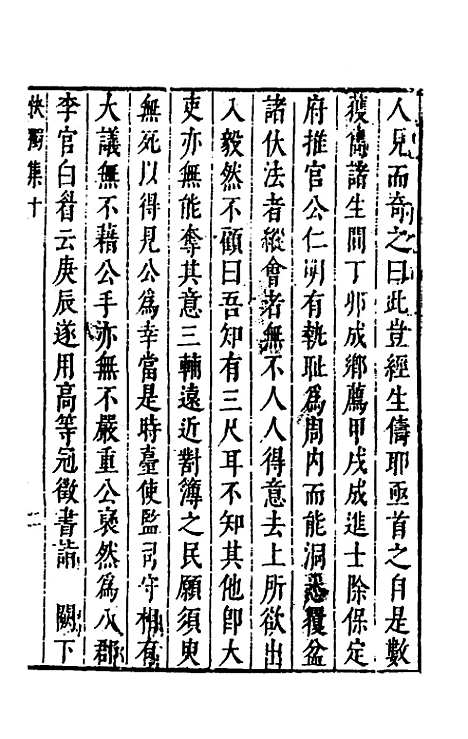 人見而奇之曰此豈經生儔耶亟首之自是數
獲雋諸生間丁卯成鄉薦甲戌成進士除保定
府推官公仁明有執耻爲周内而能洞悉覆盆
諸伏法者縱會者無不人人得意去上所欲出
入毅然不顧曰吾知有三尺耳不知其他卽大
吏亦無能奪其意三輔遠近對簿之民願須臾
無死以得見公爲幸當是時臺使監司守相有
大議無不藉公手亦無不嚴重公裒然爲八郡
李官白眉云庚辰遂用高等冠徵書詣 闕下
快獨集十